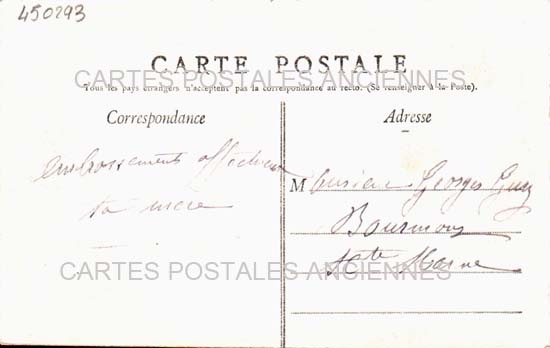 450293
CARTE POSTALE
CARTES POSTALES ANCIENNES
Tous les pays étrangers n'acceptent pas la correspondance au recto. (Se renseigner à la Poste).
Correspondance
Adresse
embrassements affectueux
ta mère
Monsieur Georges
Bourmont
Hte Marne
CARTES POSTALES ANCIENNES